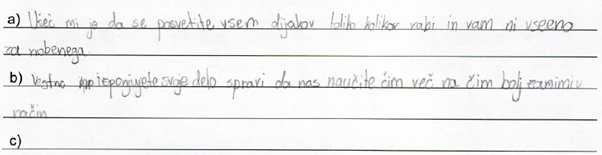 a) Všeč mi je da se posvetite vsem dijakov toliko kolikor rabi in vam ni vseeno
za nobenega.
b) Vestno izpolnjujete svoje delo spravi da nas naučite čim več na čim bolj zanimiv
način
c)